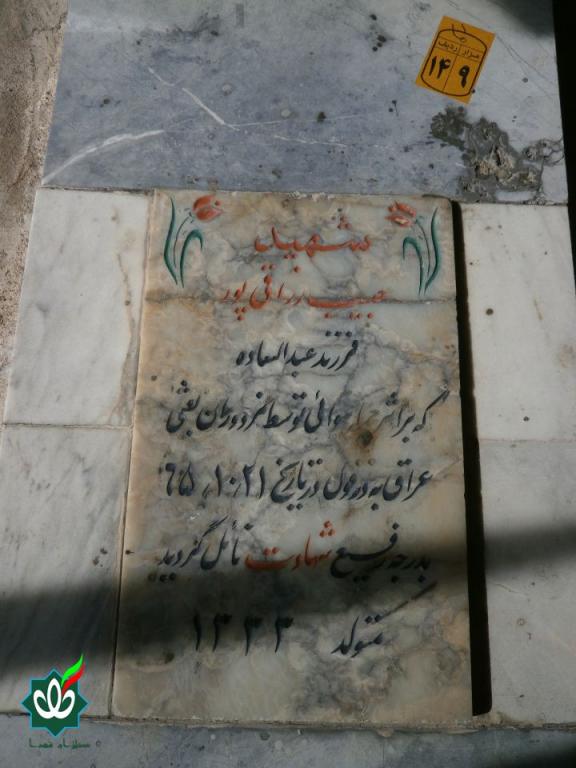 مزار ردیف
۱۴ ۹
شهید
حبیب رزاقی پور
فرزند عبدالساده
که بر اثر هوائی توسط مزدوران بعثی
عراق به دزفول در تاریخ ۶۵٫۱۰٫۲۱
بدرجه رفیع شهادت نائل گردید
متولد ۱۳۳۳